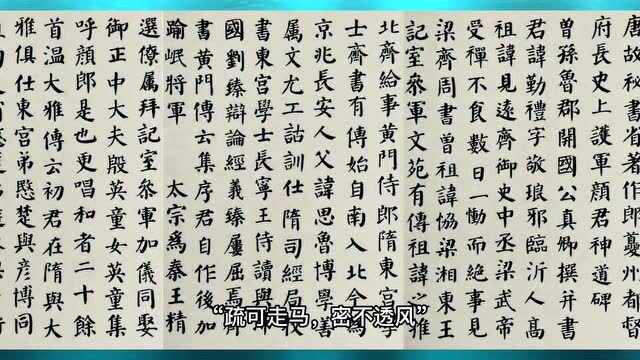 唐故秘書省著作郎夔州都督
府長史上護軍顏君神道碑
曾孫魯郡開國公真卿撰并書
君諱勤禮字敬琅邪臨沂人高
祖諱見遠齊御史中丞梁武帝
受禪不食數日一慟而絕事見
梁齊周書曾祖諱協梁湘東王
記室參軍文苑有傳祖諱之推
北齊給事黃門侍郎隋東宮學
士齊書有傳始自南入北今為
京兆長安人父諱思魯博學善
屬文尤工詁訓仕隋司經局校
書東宮學士長寧王侍讀與
國劉臻辯論經義臻屢屈焉
書黃門傳云集序君自作後加
踰岷將軍 太宗為秦王精
選僚屬拜記室參軍加儀同娶
御正中大夫殷英童女英童集
呼顏郎是也更唱和者二十餘
首溫大雅傳云初君在隋與大
雅俱仕東宮弟愍楚與彥博同
“疏可走马，密不透风”